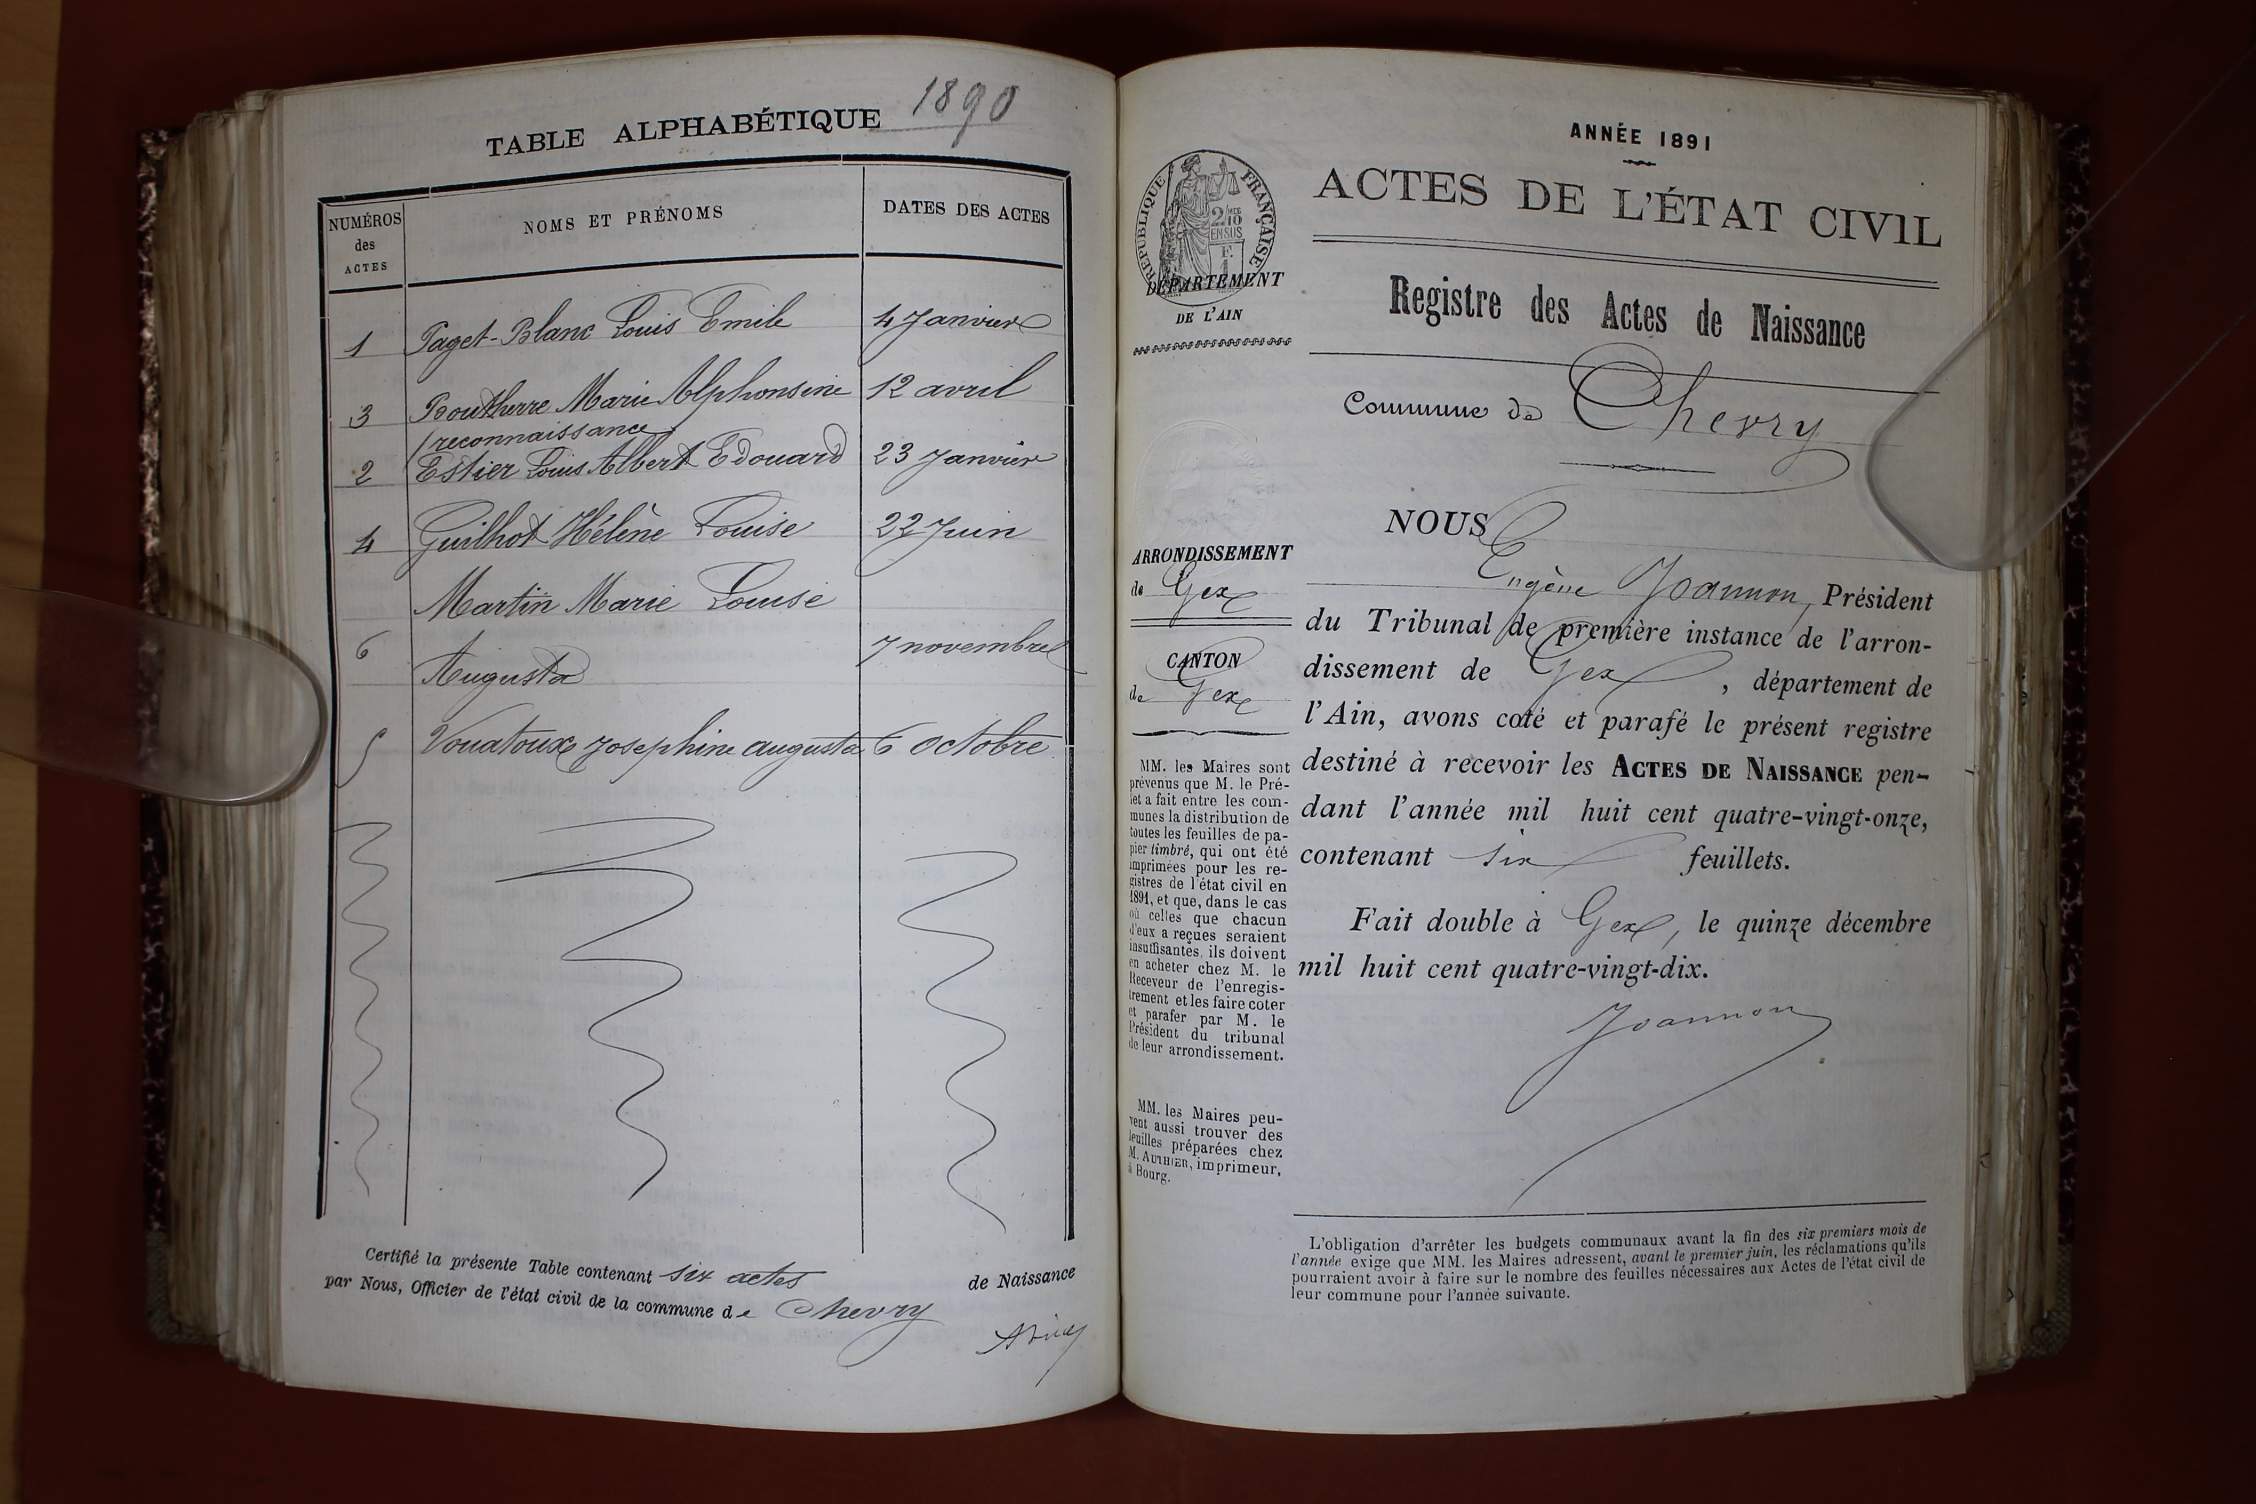 TABLE ALPHABÉTIQUE 1890
NUMÉROS des ACTES
NOMS ET PRÉNOMS
DATES DES ACTES
1 Paget-Blanc Louis Emile 4 Janvier
3 Boutherre Marie Alphonsine 12 avril
(reconnaissance)
2 Estier Louis Albert Edouard 23 Janvier
4 Guilhot Hélène Louise 22 Juin
Martin Marie Louise
6 7 novembre
Augusta
5 Vouatoux Josephine augusta 6 octobre
Certifié la présente Table contenant six actes de Naissance
par Nous, Officier de l'état civil de la commune de Chevry
ANNÉE 1891
ACTES DE L'ÉTAT CIVIL
RÉPUBLIQUE FRANÇAISE
2/10 EN SUS
F. 1
DÉPARTEMENT
DE L'AIN
Registre des Actes de Naissance
Commune de Chevry
ARRONDISSEMENT
de Gex
CANTON
de Gex
MM. les Maires sont
prévenus que M. le Pré-
fet a fait entre les com-
munes la distribution de
toutes les feuilles de pa-
pier timbré, qui ont été
imprimées pour les re-
gistres de l'état civil en
1891, et que, dans le cas
où celles que chacun
d'eux a reçues seraient
insuffisantes, ils doivent
en acheter chez M. le
Receveur de l'enregis-
trement et les faire coter
et parafer par M. le
Président du tribunal
de leur arrondissement.
MM. les Maires peu-
vent aussi trouver des
feuilles préparées chez
M. AUTHIER, imprimeur,
à Bourg.
NOUS
Eugène Joannon, Président
du Tribunal de première instance de l'arron-
dissement de Gex, département de
l'Ain, avons coté et parafé le présent registre
destiné à recevoir les ACTES DE NAISSANCE pen-
dant l'année mil huit cent quatre-vingt-onze,
contenant six feuillets.
Fait double à Gex, le quinze décembre
mil huit cent quatre-vingt-dix.
Joannon
L'obligation d'arrêter les budgets communaux avant la fin des six premiers mois de
l'année exige que MM. les Maires adressent, avant le premier juin, les réclamations qu'ils
pourraient avoir à faire sur le nombre des feuilles nécessaires aux Actes de l'état civil de
leur commune pour l'année suivante.